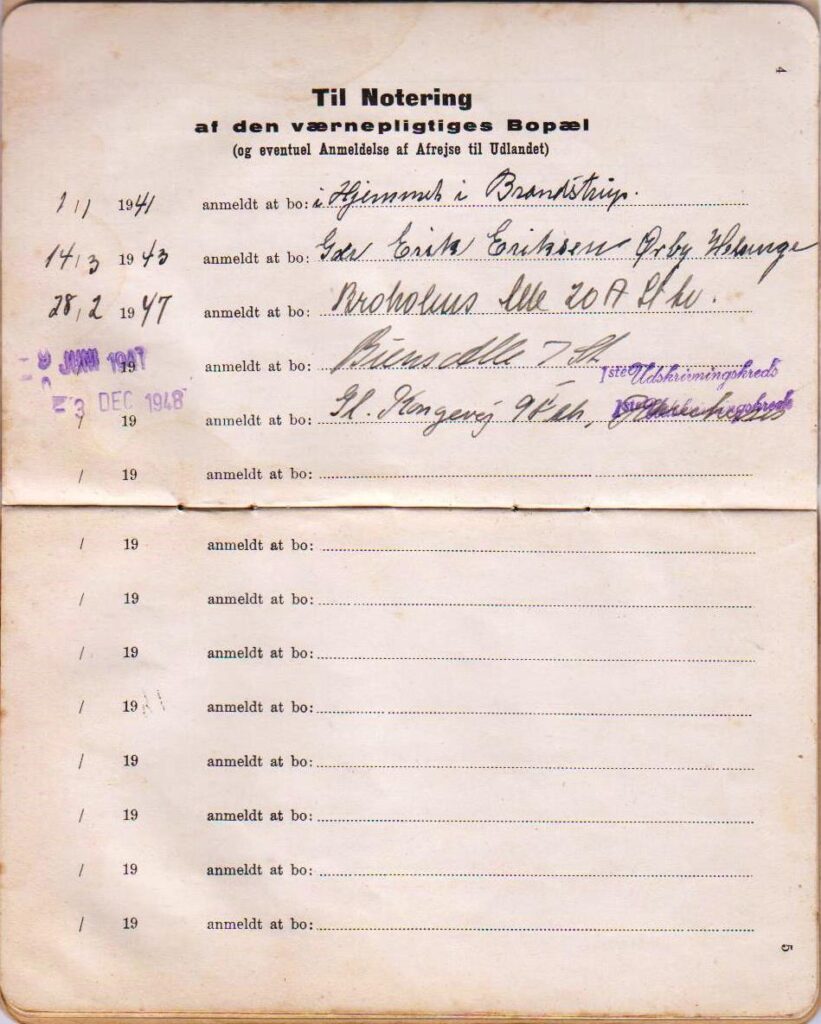 4
Til Notering
af den værnepligtiges Bopæl
(og eventuel Anmeldelse af Afrejse til Udlandet)
1/1 1941 anmeldt at bo: i Hjemmet i Brandstrup.
14/3 1943 anmeldt at bo: Gdr Erik Eriksen Ørby Helsinge
28/2 1947 anmeldt at bo: Broholms Alle 20 A St tv.
9 JUNI 1947 19 anmeldt at bo: 7 St 1ste Udskrivningskreds
3 DEC 1948 / 19 anmeldt at bo: Gl. Kongevej 1ste Udskrivningskreds
/ 19 anmeldt at bo:
/ 19 anmeldt at bo:
/ 19 anmeldt at bo:
/ 19 anmeldt at bo:
/ 19 anmeldt at bo:
/ 19 anmeldt at bo:
/ 19 anmeldt at bo:
/ 19 anmeldt at bo:
/ 19 anmeldt at bo:
5